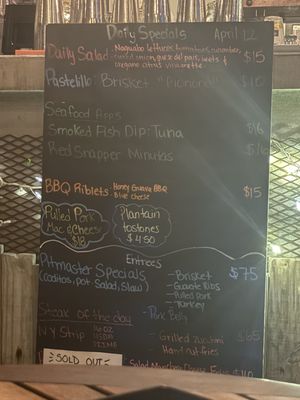 Daily Specials April 12
Daily Salad: Naguabo lettuce, tomatoes, cucumber,
$15
oregano citrus vinaigrette
Pastelillo: Brisket "Pionono" $10
Seafood Apps
Smoked Fish Dip: Tuna $16
Red Snapper Minutas
BBQ Riblets: Honey Guava BBQ $15
Blue cheese
Pulled Pork
Mac & Cheese
$18
Plantain
tostones
$4.50
Entrees
Pitmaster Specials $75
(Caditos, pot. Salad, Slaw)
- Brisket
- Guava Ribs
- Pulled Pork
- Turkey
- Pork Belly
Steak of the day $65
N.Y Strip 16 OZ
- Grilled zucchini
- Hand cut fries
SOLD OUT